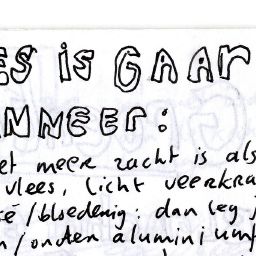 ES IS GAAR
NNEER:
et meer zacht is als
vlees, licht veerkra
é/bloederig: dan leg j
n/onder aluminiumf